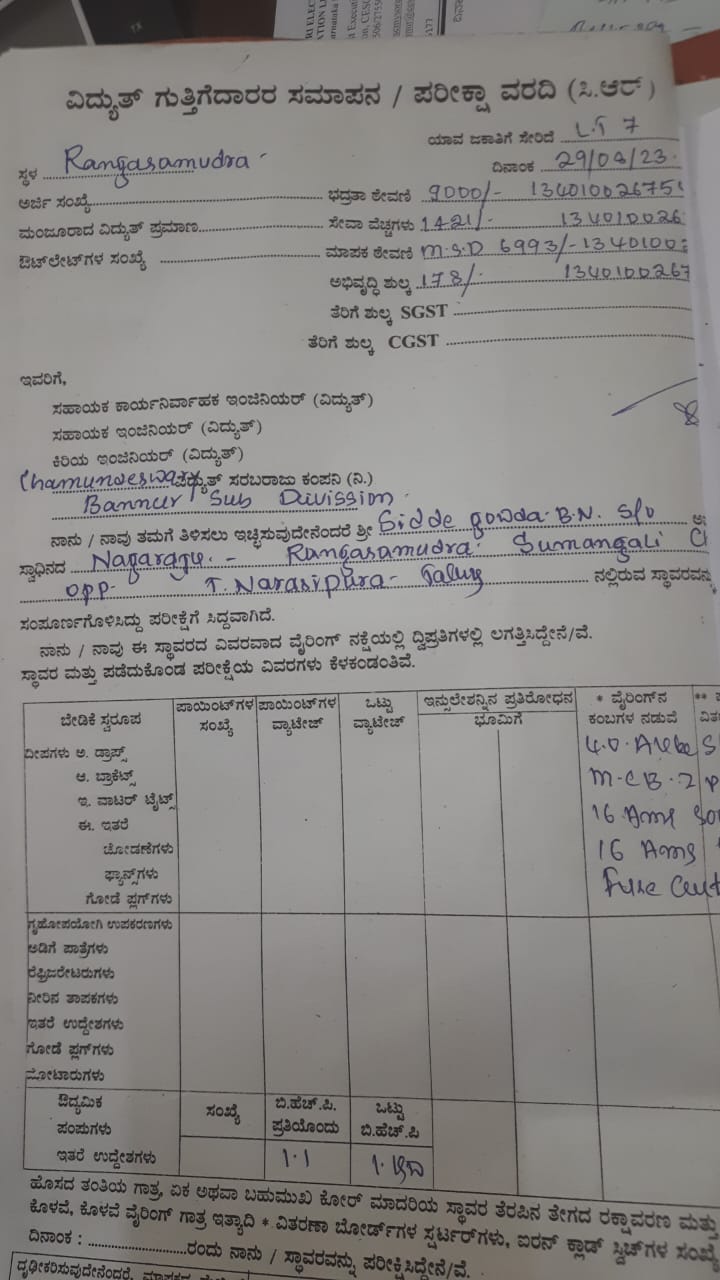 ವಿದ್ಯುತ್ ಗುತ್ತಿಗೆದಾರರ ಸಮಾಪನ / ಪರೀಕ್ಷಾ ವರದಿ (ಸಿ.ಆರ್)
ಯಾವ ಜಕಾತಿಗೆ ಸೇರಿದೆ L.T 7
ಸ್ಥಳ Rangasamudra
ದಿನಾಂಕ 29/08/23
ಅರ್ಜಿ ಸಂಖ್ಯೆ ಭದ್ರತಾ ಠೇವಣಿ 9000/- 13401002675
ಮಂಜೂರಾದ ವಿದ್ಯುತ್ ಪ್ರಮಾಣ ಸೇವಾ ವೆಚ್ಚಗಳು 1421/- 134010026
ಔಟ್‌ಲೇಟ್‌ಗಳ ಸಂಖ್ಯೆ ಮಾಪಕ ಠೇವಣಿ M.S.D 6993/- 1340100
ಅಭಿವೃದ್ಧಿ ಶುಲ್ಕ 178/- 1340100267
ತೆರಿಗೆ ಶುಲ್ಕ SGST
ತೆರಿಗೆ ಶುಲ್ಕ CGST
ಇವರಿಗೆ,
ಸಹಾಯಕ ಕಾರ್ಯನಿರ್ವಾಹಕ ಇಂಜಿನಿಯರ್ (ವಿದ್ಯುತ್)
ಸಹಾಯಕ ಇಂಜಿನಿಯರ್ (ವಿದ್ಯುತ್)
ಕಿರಿಯ ಇಂಜಿನಿಯರ್ (ವಿದ್ಯುತ್)
Chamundeswary ವಿದ್ಯುತ್ ಸರಬರಾಜು ಕಂಪನಿ (ನಿ.)
Bannur Sub Division
ನಾನು / ನಾವು ತಮಗೆ ತಿಳಿಸಲು ಇಚ್ಛಿಸುವುದೇನೆಂದರೆ ಶ್ರೀ Sidde gowda B.N. S/o
ಸ್ವಾಧಿನದ Nagaraju - Rangasamudra Sumangali
opp T. Narasipura - Taluq ನಲ್ಲಿರುವ ಸ್ಥಾವರವನ್ನು
ಸಂಪೂರ್ಣಗೊಳಿಸಿದ್ದು ಪರೀಕ್ಷೆಗೆ ಸಿದ್ಧವಾಗಿದೆ.
ನಾನು / ನಾವು ಈ ಸ್ಥಾವರದ ವಿವರವಾದ ವೈರಿಂಗ್ ನಕ್ಷೆಯಲ್ಲಿ ದ್ವಿಪ್ರತಿಗಳಲ್ಲಿ ಲಗತ್ತಿಸಿದ್ದೇನೆ/ವೆ.
ಸ್ಥಾವರ ಮತ್ತು ಪಡೆದುಕೊಂಡ ಪರೀಕ್ಷೆಯ ವಿವರಗಳು ಕೆಳಕಂಡಂತಿವೆ.
ಬೇಡಿಕೆ ಸ್ವರೂಪ ಪಾಯಿಂಟ್‌ಗಳ ಸಂಖ್ಯೆ ಪಾಯಿಂಟ್‌ಗಳ ವ್ಯಾಟೇಜ್ ಒಟ್ಟು ವ್ಯಾಟೇಜ್ ಇನ್ಸುಲೇಶನ್ನಿನ ಪ್ರತಿರೋಧನ ಭೂಮಿಗೆ * ವೈರಿಂಗ್‌ನ ಕಂಬಗಳ ನಡುವೆ
ದೀಪಗಳು ಅ. ಡ್ರಾಪ್ಸ್ 4.0
ಆ. ಬ್ರಾಕೆಟ್ಸ್ M.C.B. 2
ಇ. ವಾಟರ್ ಟೈಟ್ಸ್ 16 Ams
ಈ. ಇತರೆ
ಜೋಡಣೆಗಳು 16 Ams
ಫ್ಯಾನ್ಸ್‌ಗಳು
ಗೋಡೆ ಪ್ಲಗ್‌ಗಳು Fuse
ಗೃಹೋಪಯೋಗಿ ಉಪಕರಣಗಳು
ಅಡಿಗೆ ಪಾತ್ರೆಗಳು
ರೆಫ್ರಿಜರೇಟರುಗಳು
ನೀರಿನ ತಾಪಕಗಳು
ಇತರೆ ಉದ್ದೇಶಗಳು
ಗೋಡೆ ಪ್ಲಗ್‌ಗಳು
ಮೋಟಾರುಗಳು
ಔದ್ಯಮಿಕ ಸಂಖ್ಯೆ ಬಿ.ಹೆಚ್.ಪಿ. ಒಟ್ಟು
ಪಂಪುಗಳು ಪ್ರತಿಯೊಂದು ಬಿ.ಹೆಚ್.ಪಿ
ಇತರೆ ಉದ್ದೇಶಗಳು 1.1
ಹೊಸದ ತಂತಿಯ ಗಾತ್ರ, ಏಕ ಅಥವಾ ಬಹುಮುಖ ಕೋರ್ ಮಾದರಿಯ ಸ್ಥಾವರ ತೆರಪಿನ ತೇಗದ ರಕ್ಷಾವರಣ ಮತ್ತು
ಕೊಳವೆ, ಕೊಳವೆ ವೈರಿಂಗ್ ಗಾತ್ರ ಇತ್ಯಾದಿ * ವಿತರಣಾ ಬೋರ್ಡ್‌ಗಳ ಸ್ಟರ್ಟರ್‌ಗಳು, ಐರನ್ ಕ್ಲಾಡ್ ಸ್ವಿಚ್‌ಗಳ ಸಂಖ್ಯೆ
ದಿನಾಂಕ : ರಂದು ನಾನು / ಸ್ಥಾವರವನ್ನು ಪರೀಕ್ಷಿಸಿದ್ದೇನೆ/ವೆ.
ದೃಢೀಕರಿಸುವುದೇನೆಂದರೆ,